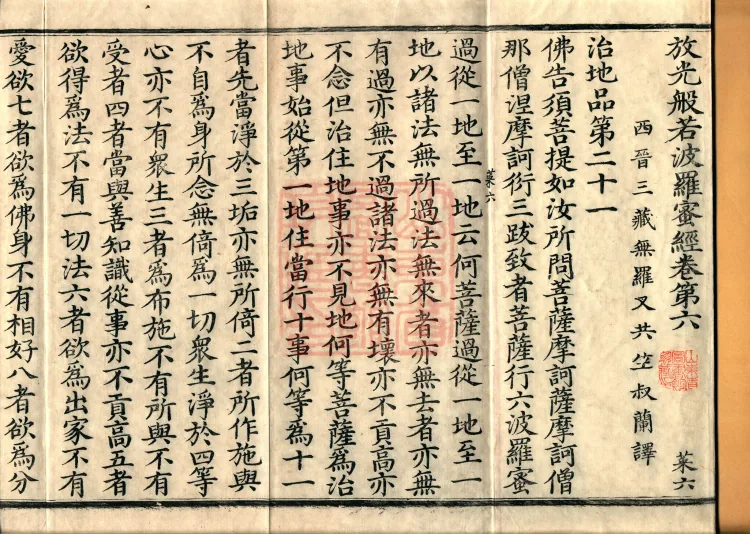 放光般若波羅蜜經卷第六 菜六
西晉三藏無羅叉共竺叔蘭譯
治地品第二十一
佛告須菩提如汝所問菩薩摩訶薩摩訶僧
那僧涅摩訶衍三跋致者菩薩行六波羅蜜
菜六
過從一地至一地云何菩薩過從一地至一
地以諸法無所過法無來者亦無去者亦無
有過亦無不過諸法亦無有壞亦不貢高亦
不念但治住地事亦不見地何等菩薩為治
地事始從第一地住當行十事何等為十一
者先當淨於三垢亦無所倚二者所作施與
不自為身所念無倚為一切眾生淨於四等
心亦不有眾生三者為布施不有所與不有
受者四者當與善知識從事亦不貢高五者
欲得為法不有一切法六者欲為出家不有
愛欲七者欲為佛身不有相好八者欲為分